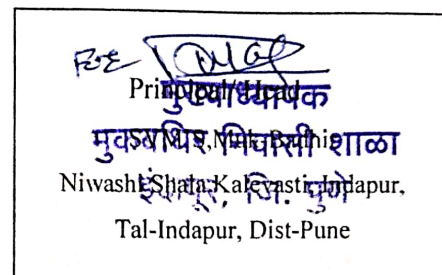 For
Principal/ Head
मुख्याध्यापक
SVM'S, Muk Badhir
मुकबधिर निवासी शाळा
Niwashi Shala, Kalevasti, Indapur,
इंदापूर, जि. पुणे
Tal-Indapur, Dist-Pune